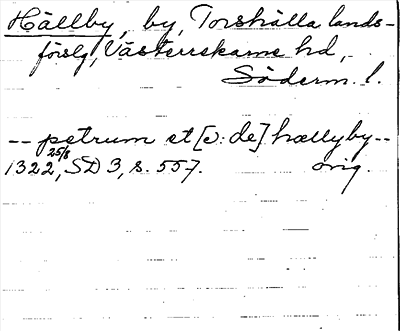 Hällby, by, Torshälla lands-
förslg, Västerrekarne hd,
Söderm. l.
-- petrum et [ɔ: de] hællyby --
1322 25/8, SD 3, s. 557. orig.